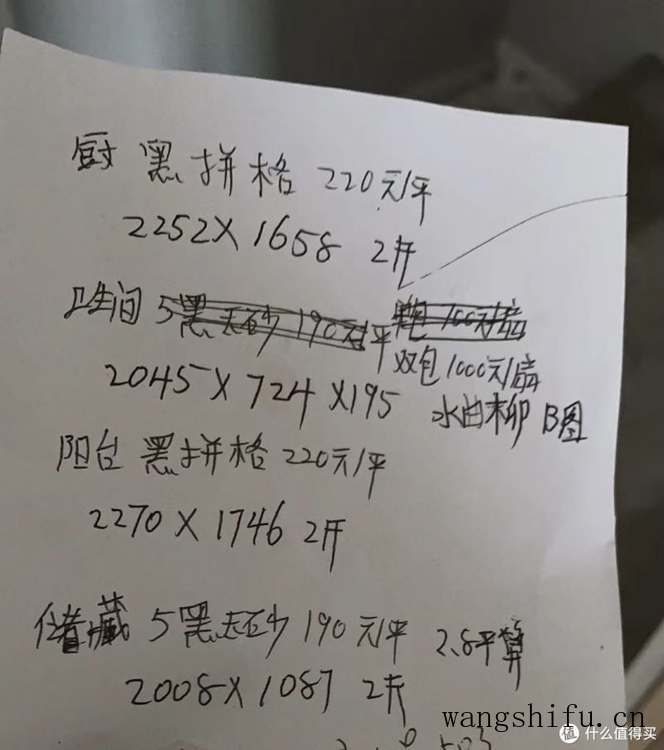 厨 黑拼格 220元/平
2252×1658 2开
卫生间 5黑 砂 190元/平 100元/扇
双包1000元/扇
2045×724×195 水曲柳 B圈
阳台 黑拼格 220元/平
2270×1746 2开
储藏 5黑 砂 190元/平 2.8平算
2008×1087 2开
wangshifu.cn
值 什么值得买